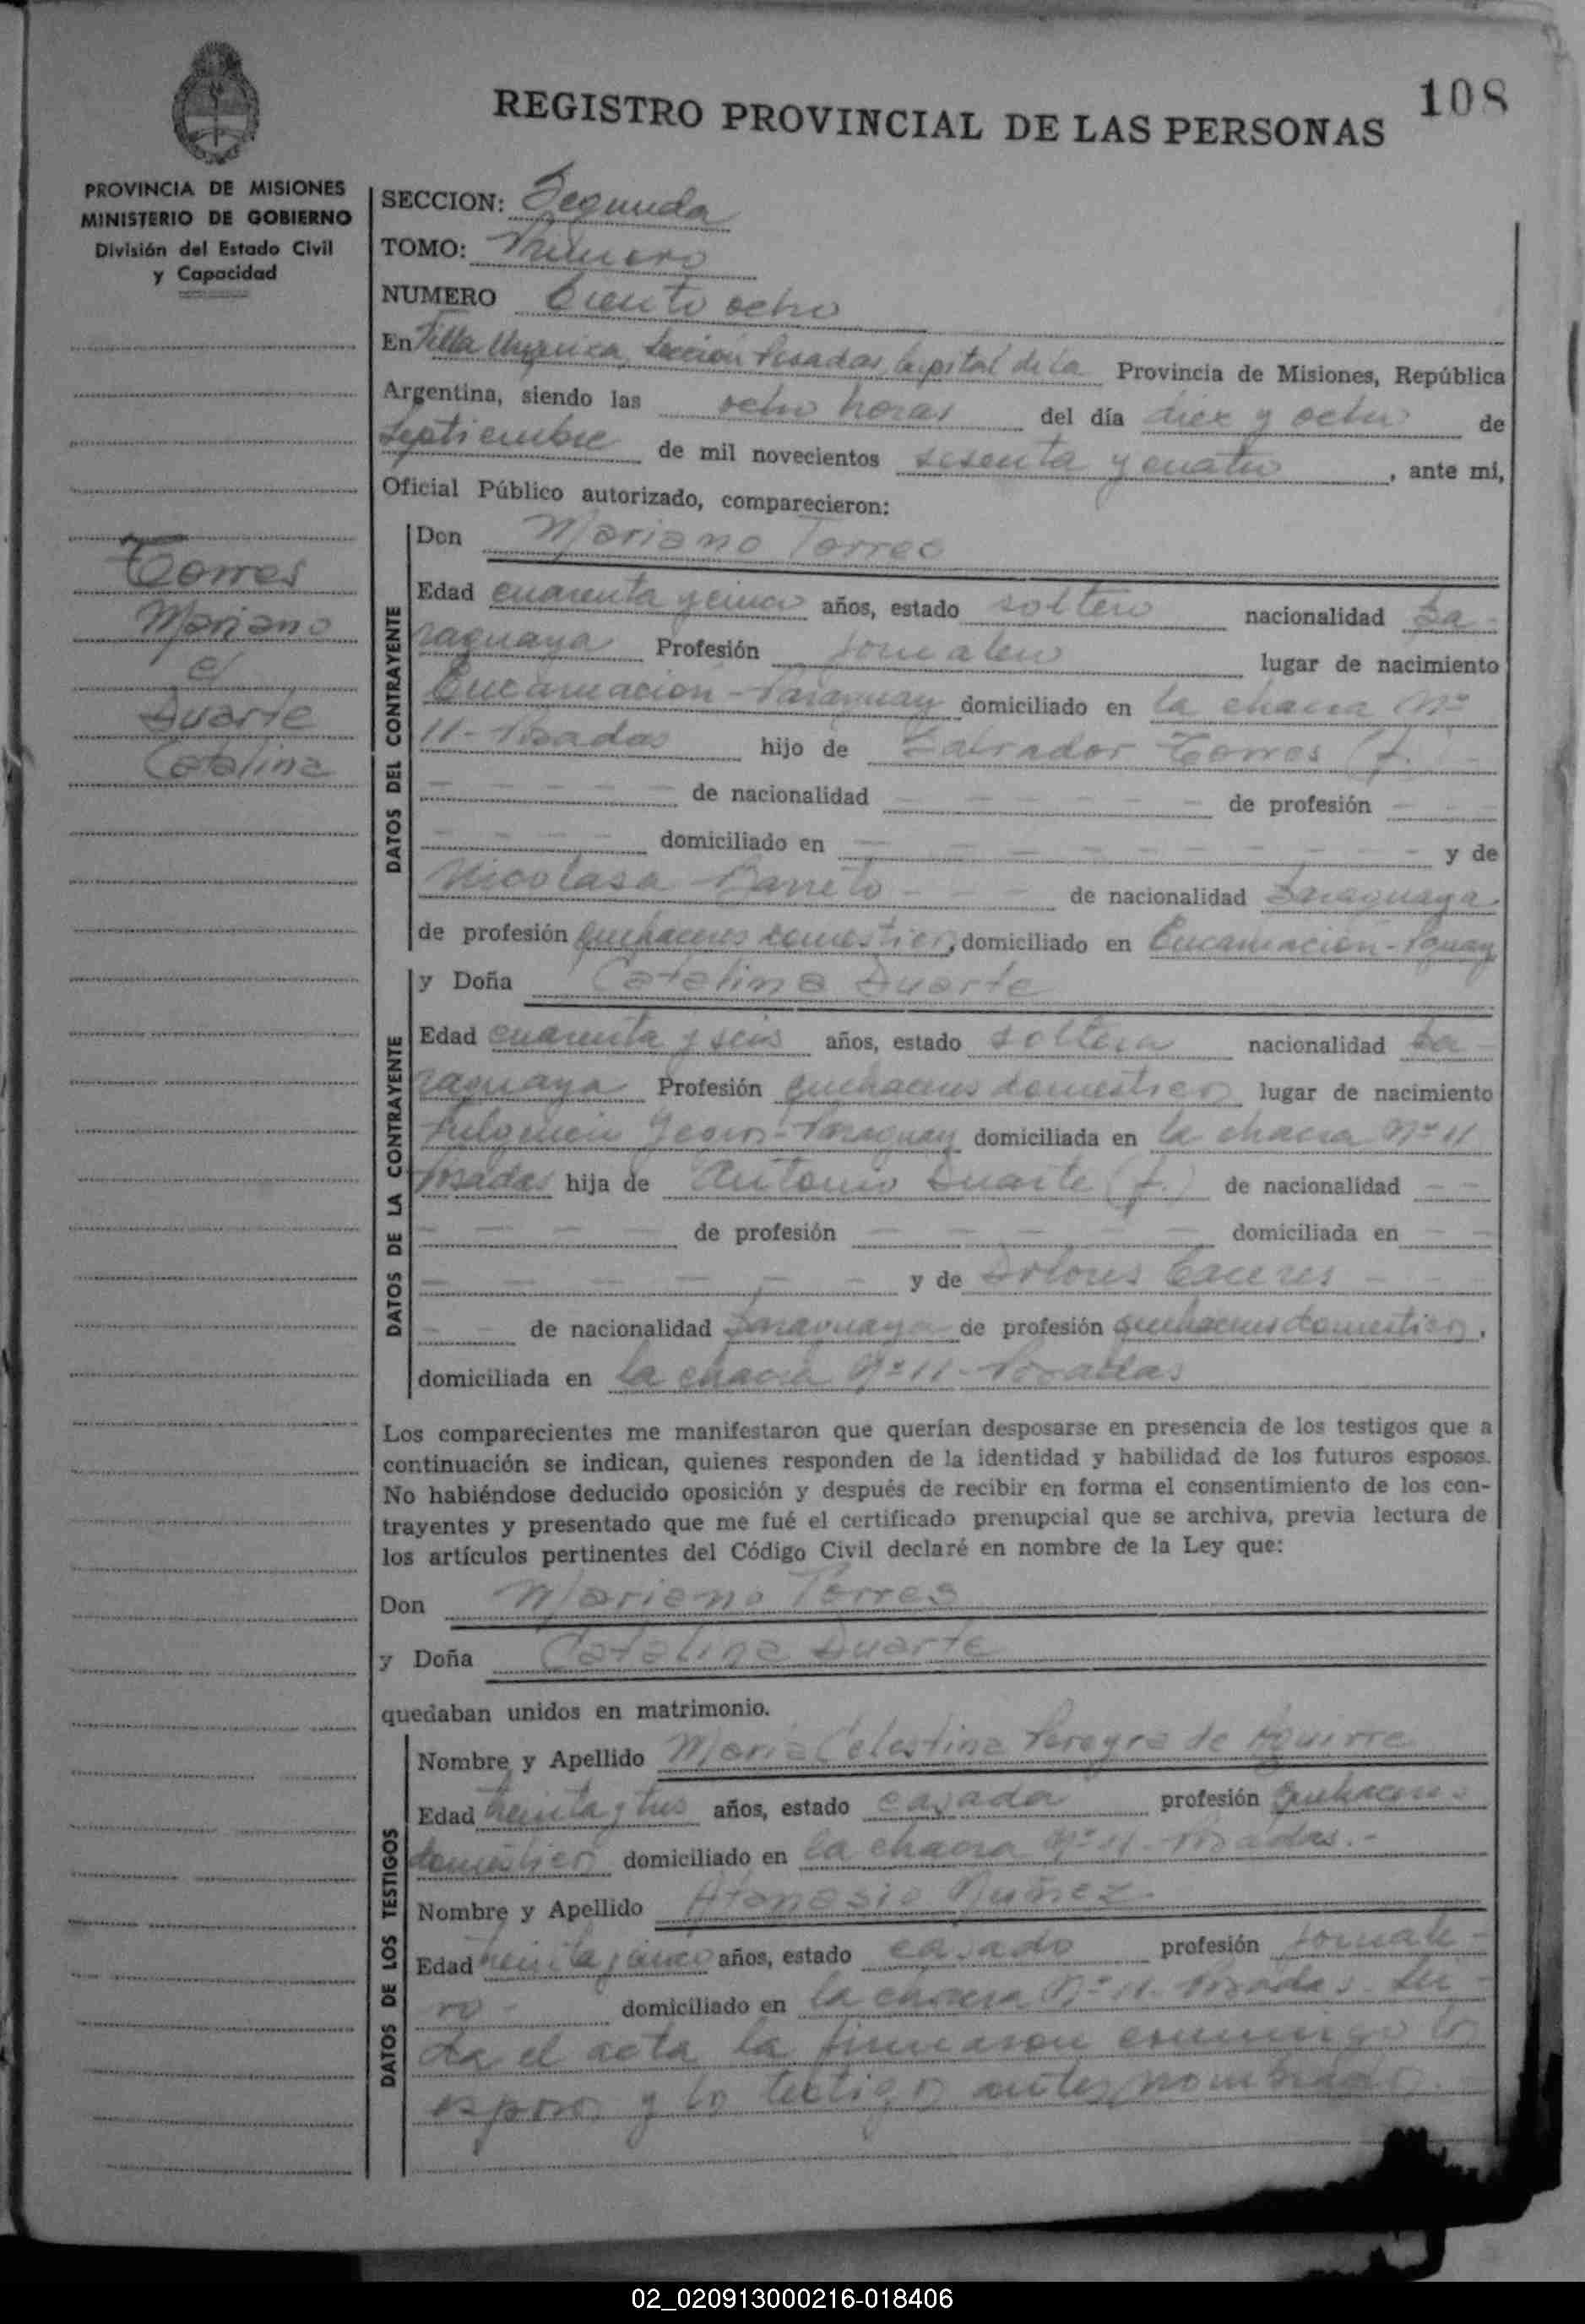 108
REGISTRO PROVINCIAL DE LAS PERSONAS
PROVINCIA DE MISIONES
MINISTERIO DE GOBIERNO
División del Estado Civil
y Capacidad
Torres
Mariano
c/
Duarte
Catalina
SECCION: Segunda
TOMO: Primero
NUMERO Ciento ocho
En Villa Urquiza, Sección Posadas, Capital de la Provincia de Misiones, República
Argentina, siendo las ocho horas del día diez y ocho de
Septiembre de mil novecientos sesenta y cuatro, ante mi,
Oficial Público autorizado, comparecieron:
DATOS DEL CONTRAYENTE
Don Mariano Torres
Edad cuarenta y cinco años, estado soltero nacionalidad Pa-
raguaya Profesión Jornalero lugar de nacimiento
Encarnación - Paraguay domiciliado en la chacra Nº
11 - Posadas hijo de Torres (f.
- - - - - de nacionalidad - - - - - de profesión - - -
- - - - domiciliado en - - - - - - - - y de
Nicolasa Barreto - - - de nacionalidad Paraguaya
de profesión quehaceres domésticos, domiciliado en Encarnación - Pguay
DATOS DE LA CONTRAYENTE
y Doña Catalina Duarte
Edad cuarenta y seis años, estado soltera nacionalidad Pa-
raguaya Profesión quehaceres domésticos lugar de nacimiento
Fulgencio Yegros - Paraguay domiciliada en la chacra Nº 11
Posadas hija de Antonio Duarte (f.) de nacionalidad - -
- - - - de profesión - - - - - domiciliada en - -
- - - - - - y de Dolores Caceres - - -
- - de nacionalidad Paraguaya de profesión quehaceres domésticos,
domiciliada en la chacra Nº 11 - Posadas
Los comparecientes me manifestaron que querían desposarse en presencia de los testigos que a
continuación se indican, quienes responden de la identidad y habilidad de los futuros esposos.
No habiéndose deducido oposición y después de recibir en forma el consentimiento de los con-
trayentes y presentado que me fué el certificado prenupcial que se archiva, previa lectura de
los artículos pertinentes del Código Civil declaré en nombre de la Ley que:
Don Mariano Torres
y Doña Catalina Duarte
quedaban unidos en matrimonio.
DATOS DE LOS TESTIGOS
Nombre y Apellido María Celestina Pereyra de Aguirre
Edad treinta y tres años, estado casada profesión quehaceres
domésticos domiciliado en la chacra Nº 11 - Posadas.-
Nombre y Apellido Atanasio Nuñez
Edad treinta y cinco años, estado casado profesión Jornale-
ro - domiciliado en la chacra Nº 11 - Posadas. Leí-
da el acta la firmaron conmigo los
esposos y los testigos antes nombrados.
02_020913000216-018406